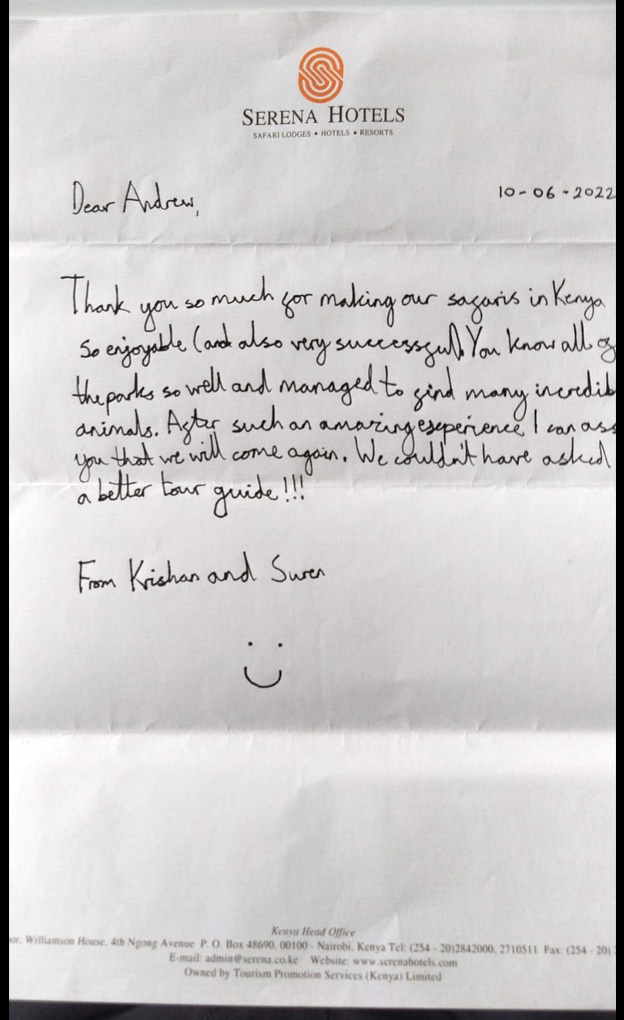 SERENA HOTELS
SAFARI LODGES • HOTELS • RESORTS
Dear Andrew,
10-06-2022
Thank you so much for making our safaris in Kenya
so enjoyable (and also very successful). You know all of
the parks so well and managed to find many incredib
animals. After such an amazing experience I can ass
you that we will come again. We couldn't have asked
a better tour guide!!!
From Krishan and Suren
Kenya Head Office
or, Williamson House, 4th Ngong Avenue P. O. Box 48690, 00100 - Nairobi, Kenya Tel: (254 - 20)2842000, 2710511 Fax: (254 - 20)
E-mail: admin@serena.co.ke Website: www.serenahotels.com
Owned by Tourism Promotion Services (Kenya) Limited